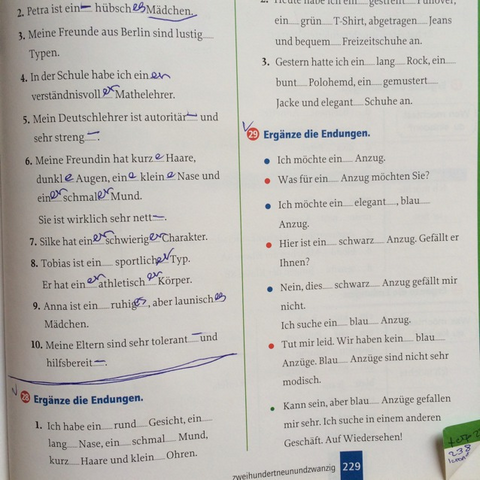 2. Petra ist ein— hübsches Mädchen.
3. Meine Freunde aus Berlin sind lustig__
Typen.
4. In der Schule habe ich einen
verständnisvoller Mathelehrer.
5. Mein Deutschlehrer ist autoritär— und
sehr streng—.
6. Meine Freundin hat kurze Haare,
dunkle Augen, eine kleine Nase und
einer schmaler Mund.
Sie ist wirklich sehr nett—.
7. Silke hat einer schwieriger Charakter.
8. Tobias ist ein__ sportlicher Typ.
Er hat einen athletischer Körper.
9. Anna ist ein__ ruhiges, aber launisches
Mädchen.
10. Meine Eltern sind sehr tolerant— und
hilfsbereit—.
28 Ergänze die Endungen.
1. Ich habe ein__ rund__ Gesicht, ein__
lang__ Nase, ein__ schmal__ Mund,
kurz__ Haare und klein__ Ohren.
ein__ grün__ T-Shirt, abgetragen__ Jeans
und bequem__ Freizeitschuhe an.
3. Gestern hatte ich ein__ lang__ Rock, ein__
bunt__ Polohemd, ein__ gemustert__
Jacke und elegant__ Schuhe an.
29 Ergänze die Endungen.
• Ich möchte ein__ Anzug.
• Was für ein__ Anzug möchten Sie?
• Ich möchte ein__ elegant__, blau__
Anzug.
• Hier ist ein__ schwarz__ Anzug. Gefällt er
Ihnen?
• Nein, dies__ schwarz__ Anzug gefällt mir
nicht.
Ich suche ein__ blau__ Anzug.
• Tut mir leid. Wir haben kein__ blau__
Anzüge. Blau__ Anzüge sind nicht sehr
modisch.
• Kann sein, aber blau__ Anzüge gefallen
mir sehr. Ich suche in einem anderen
Geschäft. Auf Wiedersehen!
zweihundertneunundzwanzig 229